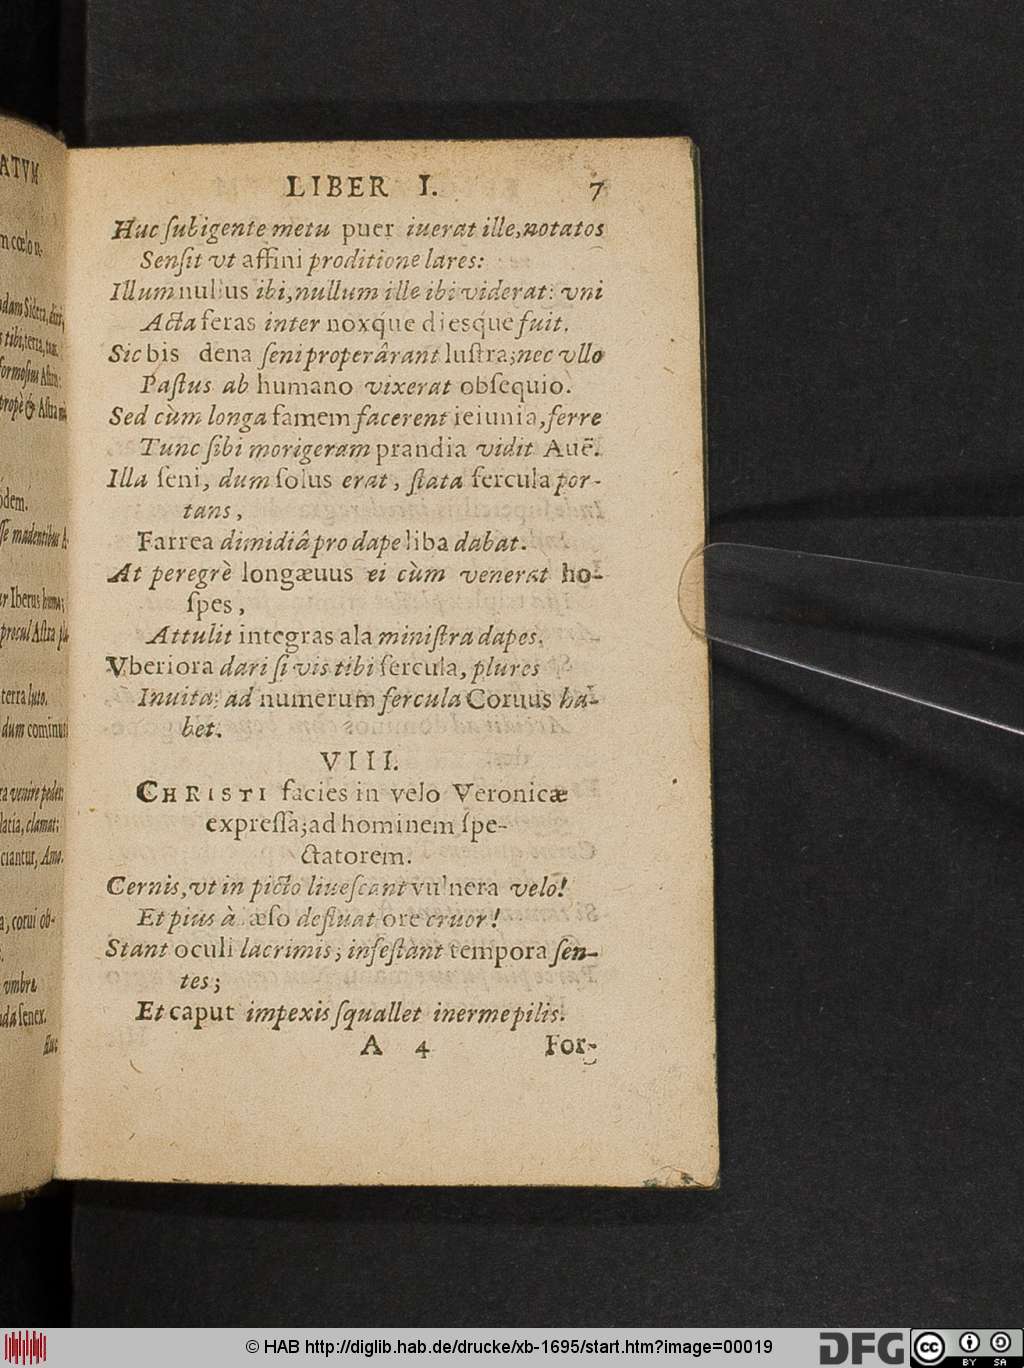 ATVM
LIBER I. 7
Huc ſubigente metu puer iuerat ille, notatos
Senſit vt affini proditione lares:
Illum nullus ibi, nullum ille ibi viderat: vni
Acta feras inter noxq́ue diesq́ue fuit.
Sic bis dena ſeni properârant luſtra; nec vllo
Paſtus ab humano vixerat obſequio.
Sed cùm longa famem facerent ieiunia, ferre
Tunc ſibi morigeram prandia vidit Auē.
Illa ſeni, dum ſolus erat, ſtata fercula por-
tans,
Farrea dimidiâ pro dape liba dabat.
At peregrè longæuus ei cùm venerat ho-
ſpes,
Attulit integras ala miniſtra dapes.
Vberiora dari ſi vis tibi fercula, plures
Inuita: ad numerum fercula Coruus ha-
bet.
VIII.
CHRISTI facies in velo Veronicæ
expreſſa; ad hominem ſpe-
ctatorem.
Cernis, vt in picto liueſcant vulnera velo!
Et pius à æſo defluat ore cruor!
Stant oculi lacrimis; infeſtant tempora ſen-
tes;
Et caput impexis ſquallet inerme pilis.
A 4 For-
© HAB http://diglib.hab.de/drucke/xb-1695/start.htm?image=00019
DFG
cc BY SA